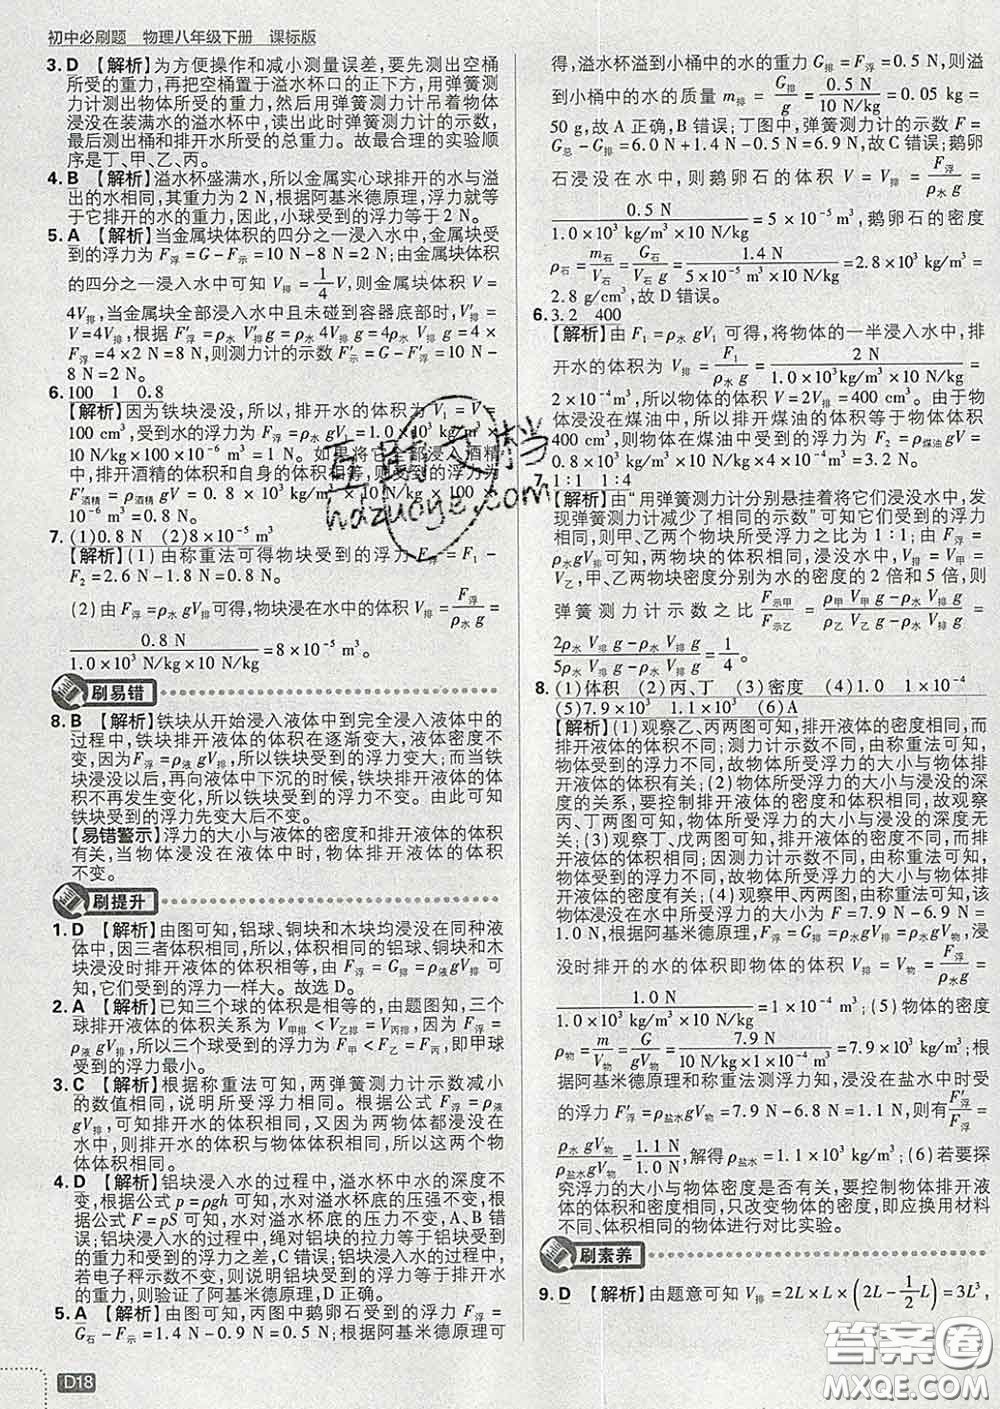 初中必刷题 物理八年级下册 课标版
3. D 【解析】为方便操作和减小测量误差,要先测出空桶
所受的重力,再把空桶置于溢水杯口的正下方,用弹簧测
力计测出物体所受的重力,然后用弹簧测力计吊着物体
浸没在装满水的溢水杯中,读出此时弹簧测力计的示数,
最后测出桶和排开水所受的总重力。故最合理的实验顺
序是丁、甲、乙、丙。
4. B 【解析】溢水杯盛满水,所以金属实心球排开的水与溢
出的水相同,其重力为 2 N,根据阿基米德原理,浮力就等
于它排开水的重力,因此,小球受到的浮力等于 2 N。
5. A 【解析】当金属块体积的四分之一浸入水中,金属块受
到的浮力为 F浮=G-F示=10 N-8 N=2 N;由金属块体积
的四分之一浸入水中可知 V排=1/4 V,则金属块体积 V=
4V排,当金属块全部浸入水中且未碰到容器底部时,V′排=
V=4V排,根据 F′浮=ρ水 V′排g=ρ水 4V排g=4ρ水 V排g=4×
F浮=4×2 N=8 N,则测力计的示数 F′示=G-F′浮=10 N-
8 N=2 N。
6. 100 1 0.8
【解析】因为铁块浸没,所以,排开水的体积为 V1=V=
100 cm³,受到水的浮力为 F浮=ρ水gV1=1.0×10³ kg/m³×
10 N/kg×100×10⁻⁶ m³=1 N。如果将它全部浸入酒精
中,排开酒精的体积和自身的体积相等,则受到的浮力为
F′酒精=ρ酒精gV=0.8×10³ kg/m³×10 N/kg×100×
10⁻⁶ m³=0.8 N。
7. (1)0.8 N (2)8×10⁻⁵ m³
【解析】(1)由称重法可得物块受到的浮力 F浮=F1-
F2=2.6 N-1.8 N=0.8 N。
(2)由 F浮=ρ水gV排可得,物块浸在水中的体积 V排=F浮/(ρ水 g)=
0.8 N/(1.0×10³ N/kg×10 N/kg)=8×10⁻⁵ m³。
刷易错
8. B 【解析】铁块从开始浸入液体中到完全浸入液体中的
过程中,铁块排开液体的体积在逐渐变大,液体密度不
变,因为F浮=ρ液gV排,所以铁块受到的浮力变大;而当铁
块浸没以后,再向液体中下沉的时候,铁块排开液体的体
积不再发生变化,所以铁块受到的浮力不变。由此可知
铁块受到的浮力先变大后不变。
【易错警示】浮力的大小与液体的密度和排开液体的体积
有关,当物体浸没在液体中时,物体排开液体的体积
不变。
刷提升
1. D 【解析】由图可知,铝球、铜块和木块均浸没在同种液
体中,因三者体积相同,所以,体积相同的铝球、铜块和木
块浸没时排开液体的体积相等,由 F浮=G排=ρ液gV排可
知,它们受到的浮力一样大。故选 D。
2. A 【解析】已知三个球的体积是相等的,由题图知,三个
球排开液体的体积关系为 V甲排<V乙排=V丙排,因为 F浮=
ρ液gV排,所以三个球受到的浮力为 F甲<F乙=F丙,即甲球
受到的浮力最小。
3. C 【解析】根据称重法可知,两弹簧测力计示数减小
的数值相同,说明所受浮力相同。根据公式 F浮=ρ液
gV排,可知排开水的体积相同,又因为两物体都浸没在
水中,则排开水的体积与物体体积相同,所以这两个物
体体积相同。
4. D 【解析】铝块浸入水的过程中,溢水杯中水的深度不
变,根据公式 p=ρgh 可知,水对溢水杯底的压强不变,根
据公式 F=pS 可知,水对溢水杯底的压力不变,A、B 错
误;铝块浸入水的过程中,绳对铝块的拉力等于铝块的重
力和受到的浮力之差,C 错误;铝块浸入水的过程中,若
电子秤示数不变,则说明铝块受到的浮力等于排开水的
重力,则验证了阿基米德原理,D 正确。
5. A 【解析】由图可知,丙图中鹅卵石受到的浮力 F浮=
G石-F示=1.4 N-0.9 N=0.5 N;根据阿基米德原理可
得,溢水杯溢到小桶中的水的重力 G排=F浮=0.5 N,则溢
到小桶中的水的质量 m排=G排/g=0.5 N/(10 N/kg)=0.05 kg=
50 g,故 A 正确,B 错误;丁图中,弹簧测力计的示数 F=
G总-G排=6.0 N+1.4 N-0.5 N=6.9 N,故 C 错误;鹅卵
石浸没在水中,则鹅卵石的体积 V=V排=F浮/(ρ水 g)=
0.5 N/(1.0×10³ kg/m³×10 N/kg)=5×10⁻⁵ m³,鹅卵石的密度
ρ石=m石/V石=G石/(V石 g)=1.4 N/(5×10⁻⁵ m³×10 N/kg)=2.8×10³ kg/m³=
2.8 g/cm³,故 D 错误。
6. 3.2 400
【解析】由 F浮=ρ水gV排可得,将物体的一半浸入水中,排
开水的体积为 V排=F1/(ρ水 g)=2 N/(1.0×10³ kg/m³×10 N/kg)=
2×10⁻⁴m³,所以物体的体积为 V=2V排=400 cm³。由于物
体浸没在煤油中,所以排开煤油的体积等于物体体积
400 cm³,则物体在煤油中受到的浮力为 F2=ρ煤油gV=
0.8×10³ kg/m³×10 N/kg×400×10⁻⁶ m³=3.2 N。
7. 1:1 1:4
【解析】由“用弹簧测力计分别悬挂着将它们浸没水中,发
现弹簧测力计减少了相同的示数”可知它们受的浮力相
同,则甲、乙两个物块所受浮力之比为 1:1;由 F浮=ρ水
gV排可知,两物块的体积相同,浸没水中,V排=V甲=
V乙,甲、乙两物块密度分别为水的密度的 2 倍和 5 倍,则
弹簧测力计示数之比 F示甲/F示乙=
=1/4。
8. (1)体积 (2)丙、丁 (3)密度 (4)1.0 1×10⁻⁴
(5)7.9×10³ 1.1×10³ (6)A
【解析】(1)观察乙、丙两图可知,排开液体的密度相同,而
排开液体的体积不同;测力计示数不同,由称重法可知,
所受浮力不同,故物体所受浮力的大小与物体排开液体
的体积有关;(2)物体所受浮力的大小与浸没的
深度的关系,要控制排开液体的密度和体积相同,故观察
丙、丁两图可知,物体所受浮力的大小与浸没的深度无关
;(3)观察丁、戊两图可知,排开液体的密度不同,而排
开液体的体积相同;因测力计示数不同,由称重法可知,
所受浮力不同,故物体所受浮力的大小与物体排开液体的
密度有关;(4)观察甲、丙两图,由称重法可知,该物体浸
没在水中所受浮力的大小为 F=7.9 N-6.9 N=
1.0 N,根据阿基米德原理,F浮=G排=ρ水gV排=ρ水gV物,浸
没时排开的水的体积即物体的体积 V排=V物=F浮/(ρ水 g)=
1.0 N/(1.0×10³ kg/m³×10 N/kg)=1×10⁻⁴ m³;(5)物体的密度
ρ物=m/V物=G/(gV物)=7.9 N/(10 N/kg×1×10⁻⁴ m³)=7.9×10³ kg/m³;根
据阿基米德原理和称重法测浮力知,浸没在盐水中时受
的浮力 F′浮=ρ盐水gV物=7.9 N-6.8 N=1.1 N,则有F′浮/F浮=
ρ盐水gV物/ρ水gV物=1.1 N/1.0 N,解得 ρ盐水=1.1×10³ kg/m³;(6)若要探
究浮力的大小与物体密度是否有关,要控制物体排开液
体的体积和密度相同,只改变物体的密度,即应换用材料
不同、体积相同的物体进行对比实验。
刷素养
9. D 【解析】由题意可知 V排=2L×L×(2L-1/2L)=3L³,
D18
答案圈
MXQE.COM
hdzuoye.com